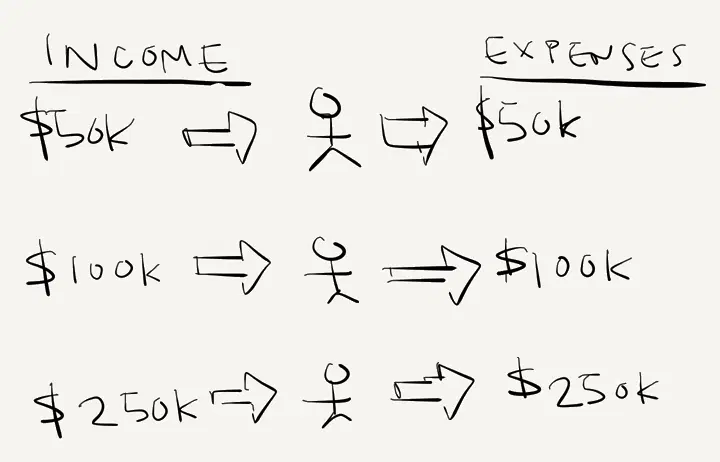 INCOME EXPENSES
$50k $50k
$100k $100k
$250k $250k